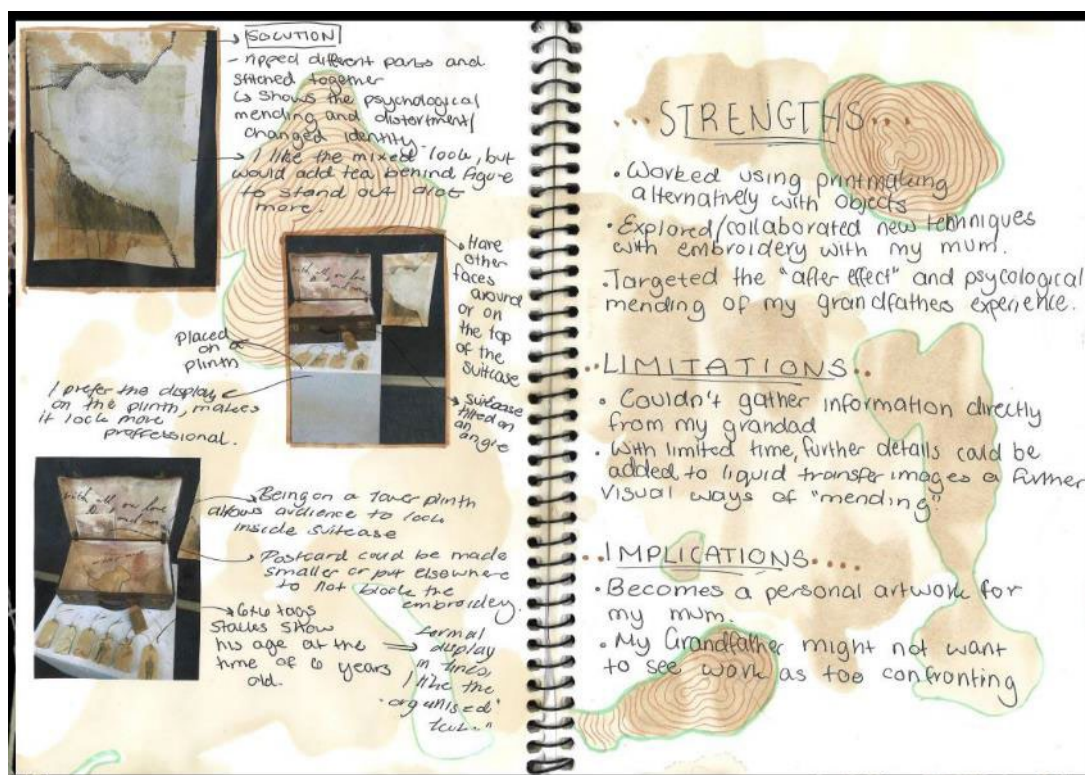 SOLUTION
- ripped different parts and
stitched together
↳ shows the psychological
mending and distortment/
changed identity.
I like the mixed look, but
would add tea behind figure
to stand out
more.
Have
other
faces
around
or on
the top
of the
suitcase
Placed
on a
plinth
I prefer the display
on the plinth, makes
it look more
proffessional.
suitcase
tilted on
an
angle
with all our love
Being on a lower plinth
allows audience to look
inside suitcase
Postcard could be made
smaller or put elsewhere
to not block the
embroidery.
6x6 tags
stacks show
his age at the
time of 6 years
old.
formal
display
in lines,
I like the
'organised'
look."
...STRENGTHS...
• Worked using printmaking
alternatively with objects
• Explored/collaborated new techniques
with embroidery with my mum.
• Targeted the "after effect" and psycological
mending of my grandfathers experience.
..LIMITATIONS...
• Couldn't gather information directly
from my grandad
• With limited time, further details could be
added to liquid transfer images & further
visual ways of "mending"
...IMPLICATIONS....
• Becomes a personal artwork for
my mum.
• My Grandfather might not want
to see work as too confronting